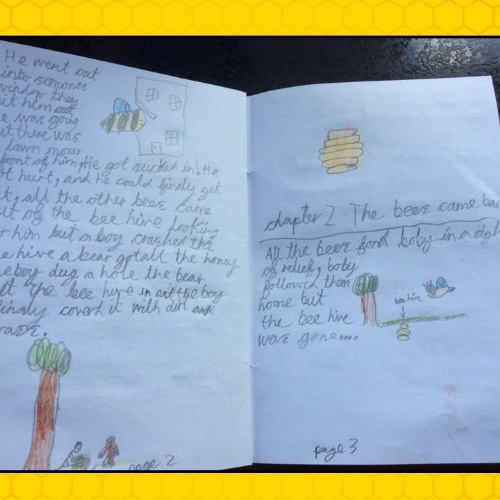 He went out
into someones
window they
him
was going
there was
lawn mower
front of him, He got sucked in the
hurt, and he could finaly get
all the other bees came
of the bee hive looking
him but a boy crashed the
hive a bear got all the honey
boy dug a hole the bear
the bee hive in and the boy
finaly coverd it with dirt and
page 2
chapter 2 The bees came
All the bees fond boby in a
of relief, boby
followed them
home but
the bee hive
was gone....
bee hive
page 3